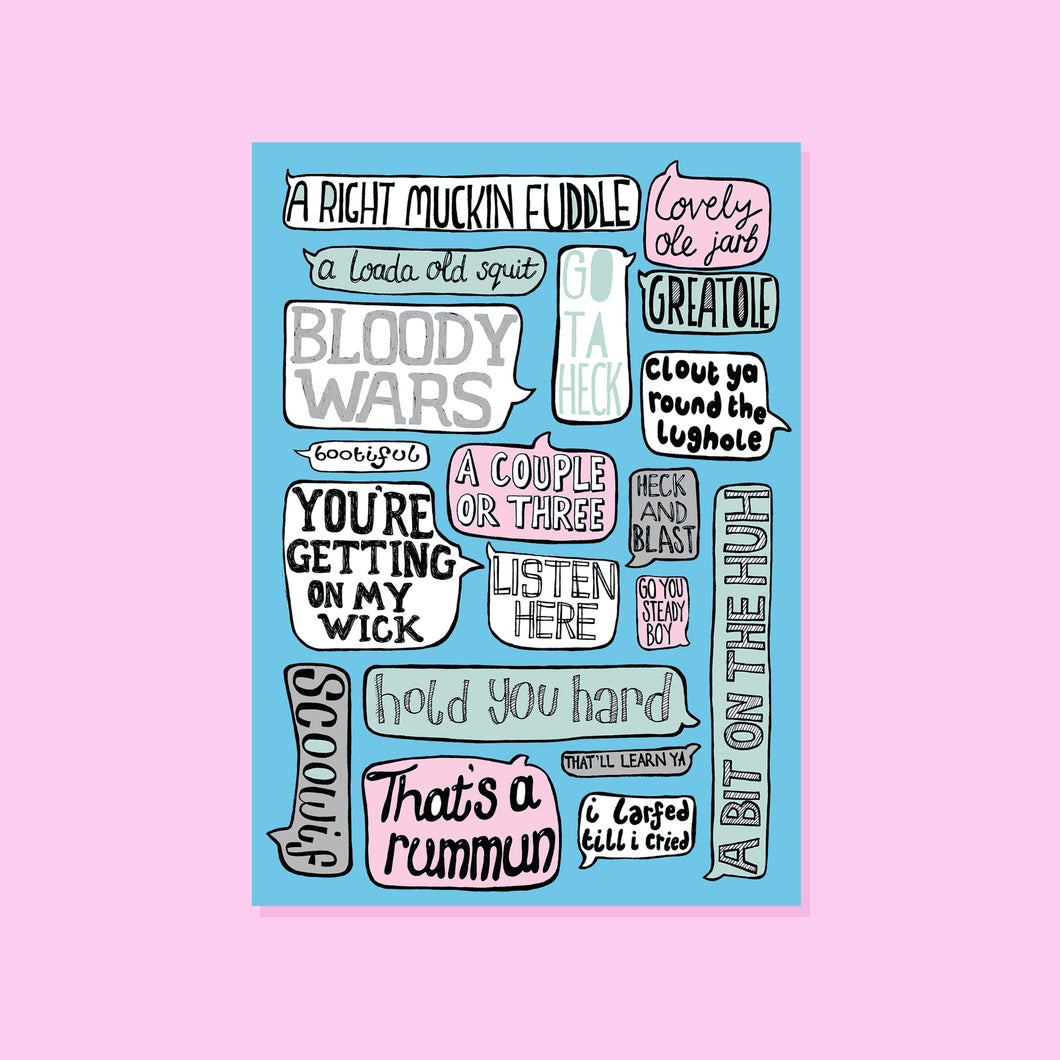 A RIGHT MUCKIN FUDDLE
lovely
ole jarb
a loada old squit
GO
TA
HECK
GREATOLE
BLOODY
WARS
Clout ya
round the
lughole
bootiful
A COUPLE
OR THREE
HECK
AND
BLAST
YOU'RE
GETTING
ON MY
WICK
LISTEN
HERE
GO YOU
STEADY
BOY
A BIT ON THE HUH
Scoowif
hold you hard
THAT'LL LEARN YA
That's a
rummun
i larfed
till i cried